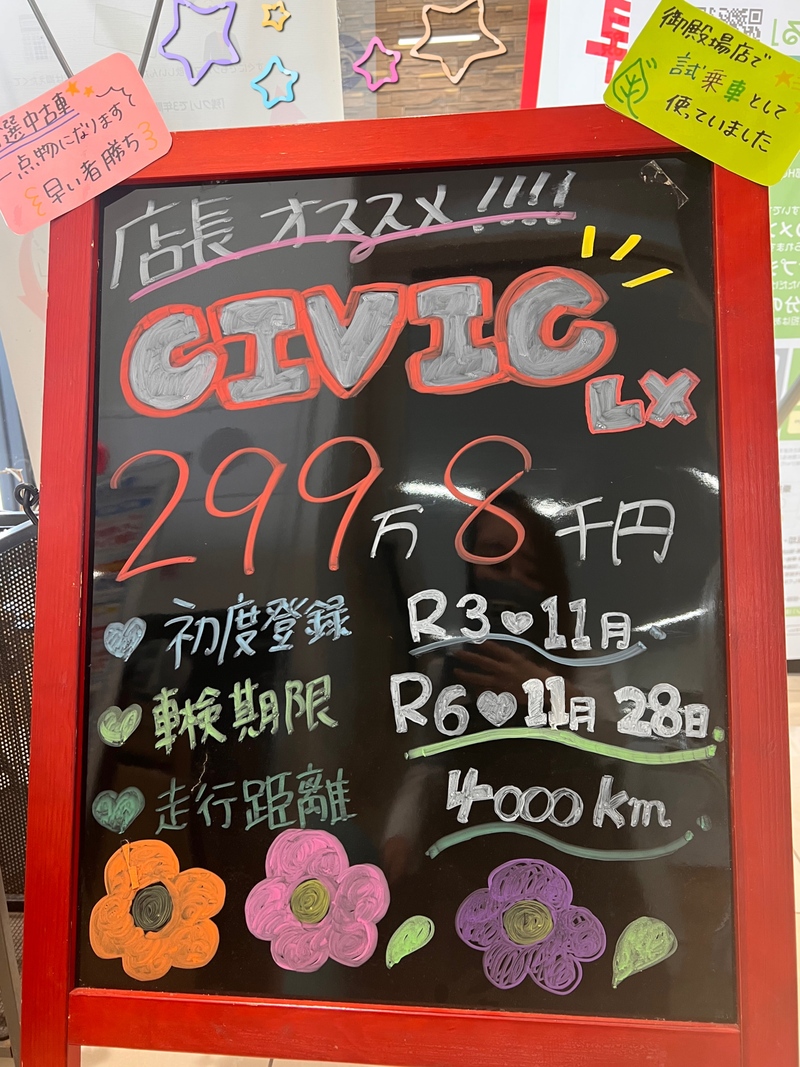 選中古車
一点物になります
早い者勝ち
御殿場店で
試乗車として
使っていました
店長 オススメ!!!!
CIVIC
LX
299万8千円
初度登録 R3♥11月
車検期限 R6♥11月28日
走行距離 4000km